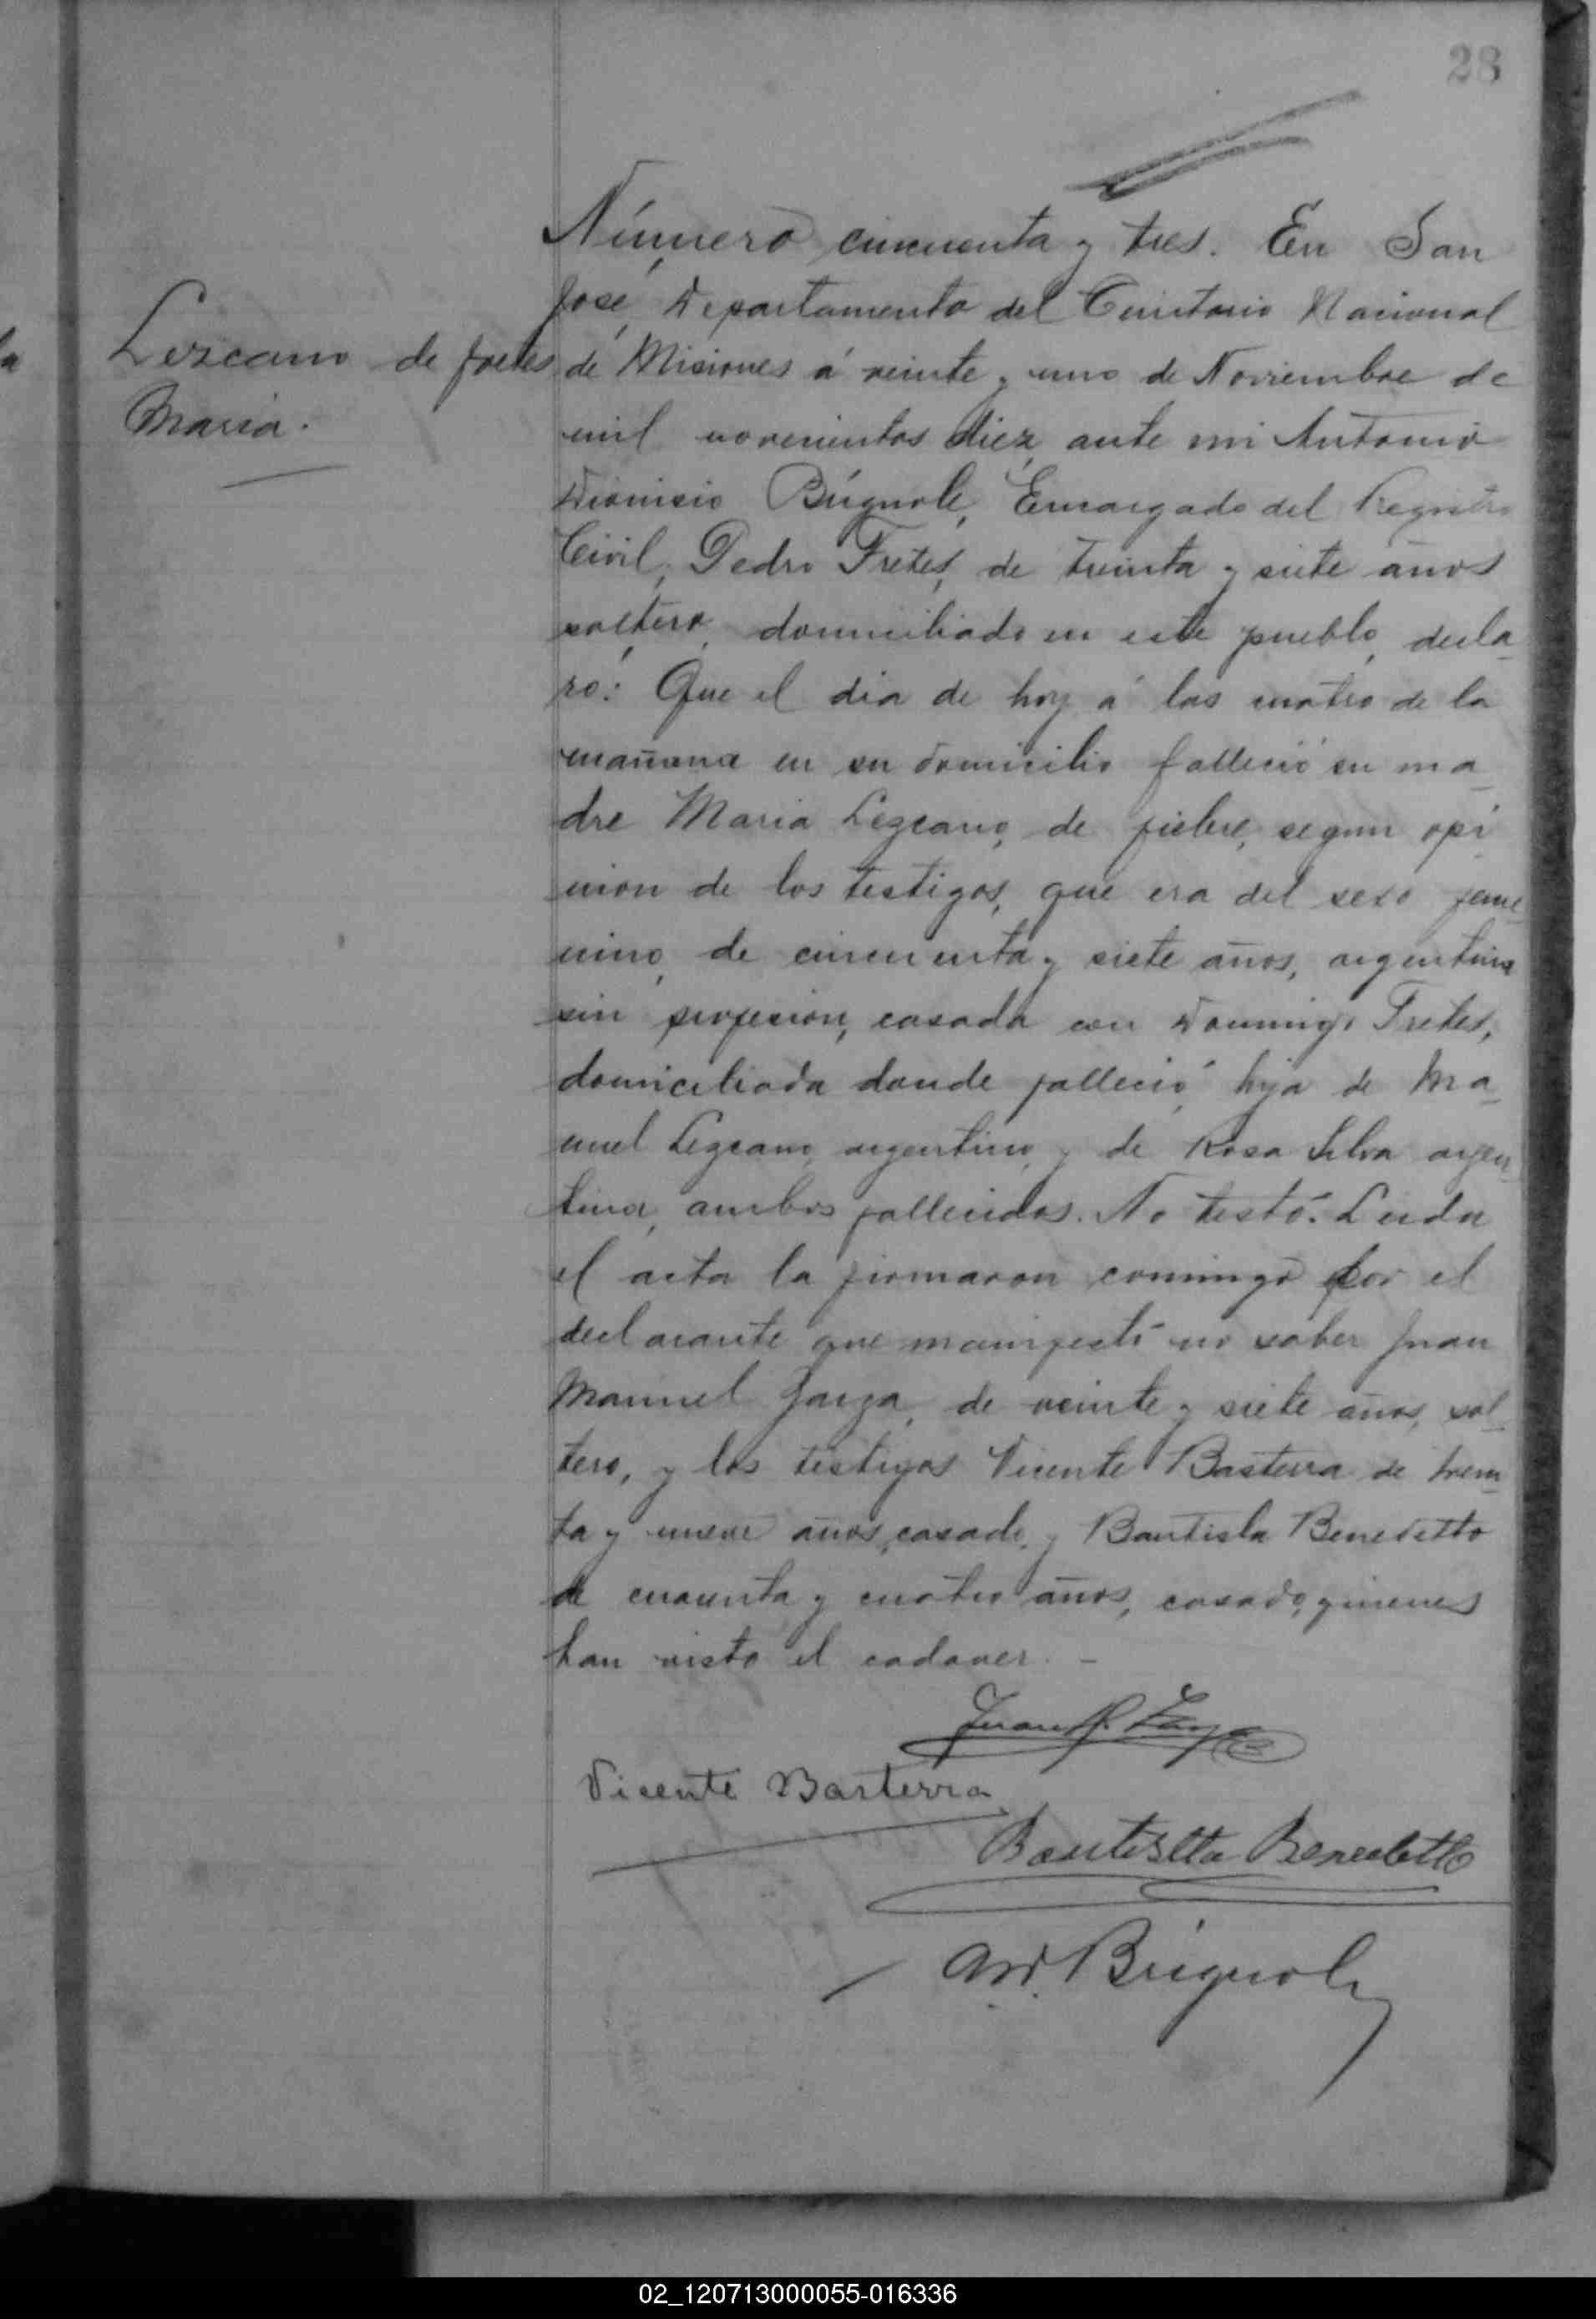 28
Número cincuenta y tres. En San
José, Departamento del Territorio Nacional
Lezcano de fretes
Maria.
de Misiones á veinte y uno de Noviembre de
mil novecientos diez, ante mi Antonio
Dionicio Brignole, Encargado del Registro
Civil, Pedro Fretes, de treinta y siete años
soltero, domiciliado en este pueblo, decla_
ró: Que el dia de hoy á las cuatro de la
mañana en su domicilio falleció su ma_
dre Maria Lezcano, de fiebre, segun opi
nion de los testigos, que era del sexo feme_
nino, de cincuenta y siete años, argentina
sin profesion, casada con Domingo Fretes,
domiciliada donde falleció, hija de Ma_
nuel Lezcano, argentino, y de Rosa Silva argen_
tina, ambos fallecidos. No testó. Leida
el acta la firmaron conmigo por el
declarante que manifestó no saber Juan
Manuel de veinte y siete años, sol_
tero, y los testigos Vicente Basterra de trein_
ta y nueve años, casado, y Bautista Benedetto
de cuarenta y cuatro años, casado, quienes
han visto el cadaver. -
Juan M.
Vicente Basterra
Bautistta Benedetto
AD. Brignole
02_120713000055-016336